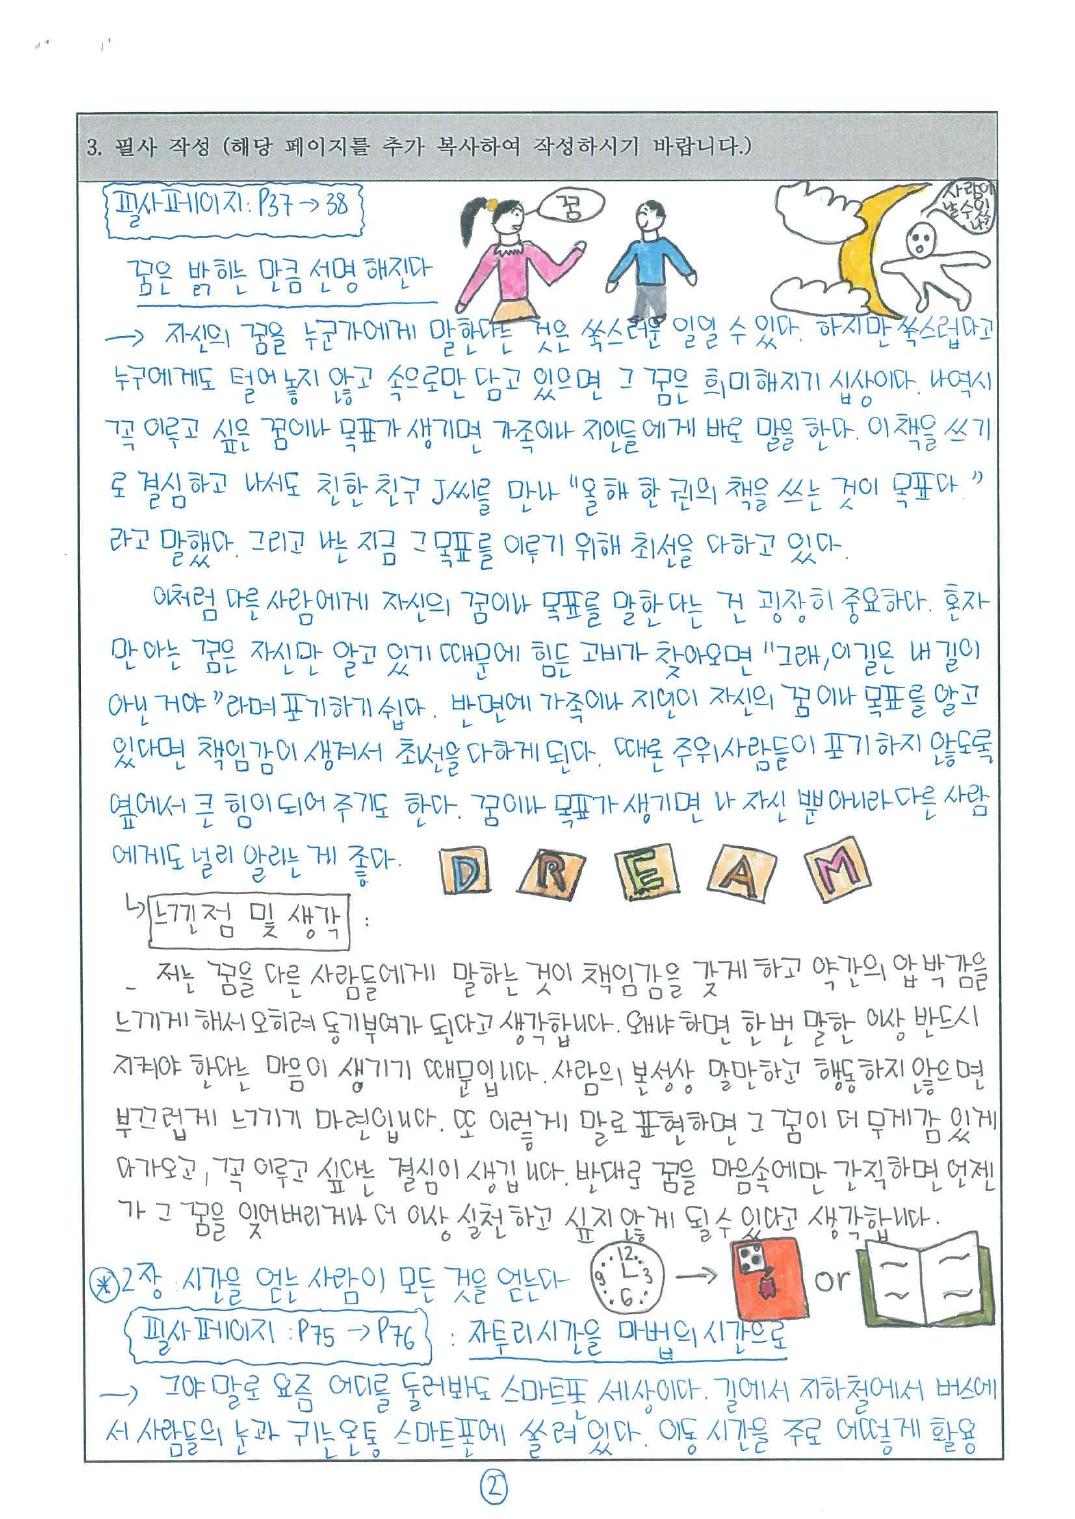 3. 필사 작성 (해당 페이지를 추가 복사하여 작성하시기 바랍니다.)
필사페이지 : P37 → 38
꿈
사람이
날 수 있
나?
꿈은 밝히는 만큼 선명해진다
→ 자신의 꿈을 누군가에게 말한다는 것은 쑥스러운 일일 수 있다. 하지만 쑥스럽다고
누구에게도 털어놓지 않고 속으로만 담고 있으면 그 꿈은 희미해지기 십상이다. 나역시
꼭 이루고 싶은 꿈이나 목표가 생기면 가족이나 지인들에게 바로 말을 한다. 이책을 쓰기
로 결심하고 나서도 친한 친구 J씨를 만나 "올해 한 권의 책을 쓰는 것이 목표다."
라고 말했다. 그리고 나는 지금 그목표를 이루기 위해 최선을 다하고 있다.
이처럼 다른사람에게 자신의 꿈이나 목표를 말한다는 건 굉장히 중요하다. 혼자
만 아는 꿈은 자신만 알고 있기 때문에 힘든 고비가 찾아오면 "그래, 이길은 내 길이
아닌 거야"라며 포기하기 쉽다. 반면에 가족이나 지인이 자신의 꿈이나 목표를 알고
있다면 책임감이 생겨서 최선을 다하게 된다. 때론 주위사람들이 포기하지 않도록
옆에서 큰 힘이 되어 주기도 한다. 꿈이나 목표가 생기면 나 자신 뿐아니라 다른 사람
에게도 널리 알리는 게 좋다.
D R E A M
↳ 느낀점 및 생각 :
- 저는 꿈을 다른 사람들에게 말하는 것이 책임감을 갖게 하고 약간의 압박감을
느끼게 해서 오히려 동기부여가 된다고 생각합니다. 왜냐 하면 한번 말한 이상 반드시
지켜야 한다는 마음이 생기기 때문입니다. 사람의 본성상 말만하고 행동하지 않으면
부끄럽게 느끼기 마련입니다. 또 이렇게 말로 표현하면 그 꿈이 더 무게감 있게
다가오고, 꼭 이루고 싶다는 결심이 생깁니다. 반대로 꿈을 마음속에만 간직하면 언젠
가 그 꿈을 잊어버리거나 더 이상 실천하고 싶지 않게 될수 있다고 생각합니다.
⊛ 2장 : 시간을 얻는 사람이 모든 것을 얻는다
12 3 6 9 → or
필사페이지 : P75 → P76 : 자투리시간을 마법의 시간으로
→ 그야 말로 요즘 어디를 둘러봐도 스마트폰 세상이다. 길에서 지하철에서 버스에
서 사람들의 눈과 귀는 온통 스마트폰에 쏠려 있다. 이동 시간을 주로 어떻게 활용
②